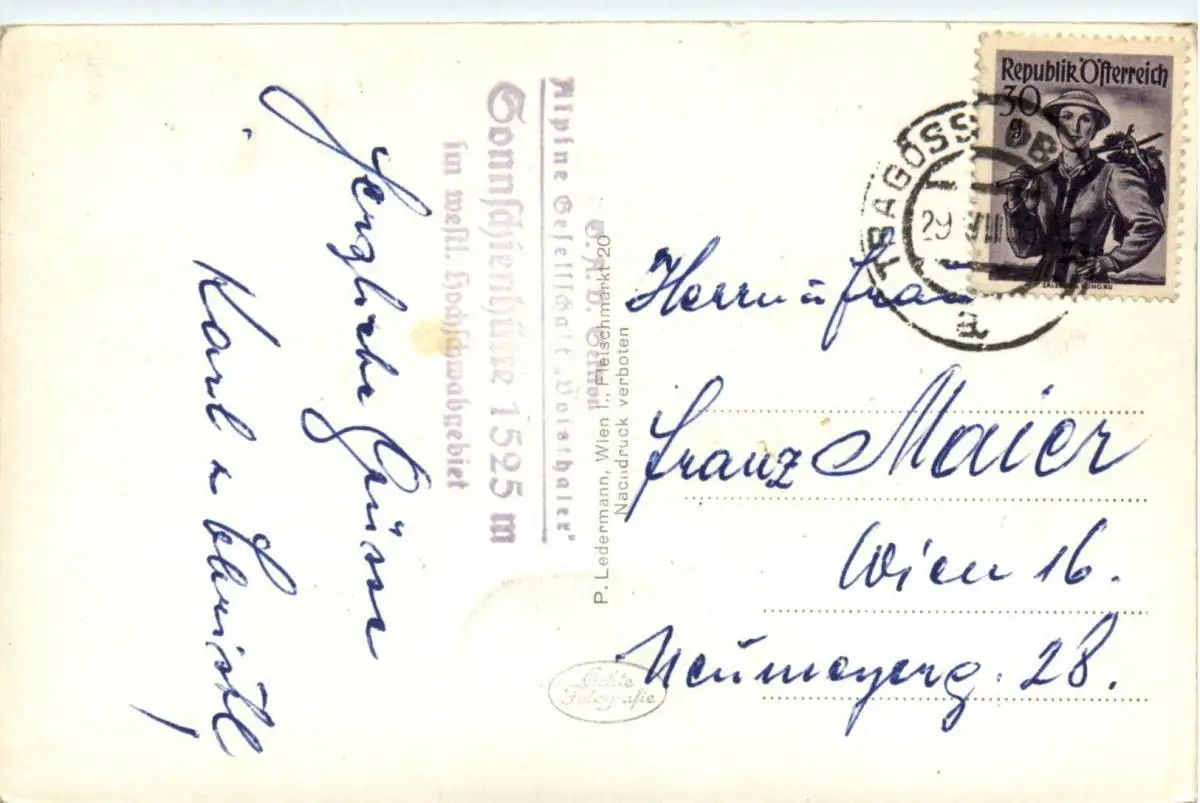 Herzliche Grüsse
Karl u Christl
Ö.A.V. Sektion
Alpine Gesellschaft „Voisthaler"
Sonnschienhütte 1525 m
im westl. Hochschwabgebiet
P. Ledermann, Wien I., Fleischmarkt 20
Nachdruck verboten
Echte
Fotografie
Republik Österreich
30
g
SALZBURG LUNGAU
TRAGÖSS OB
29 VIII
a
Herrn u Frau
Franz Maier
Wien 16.
Neumayerg. 28.